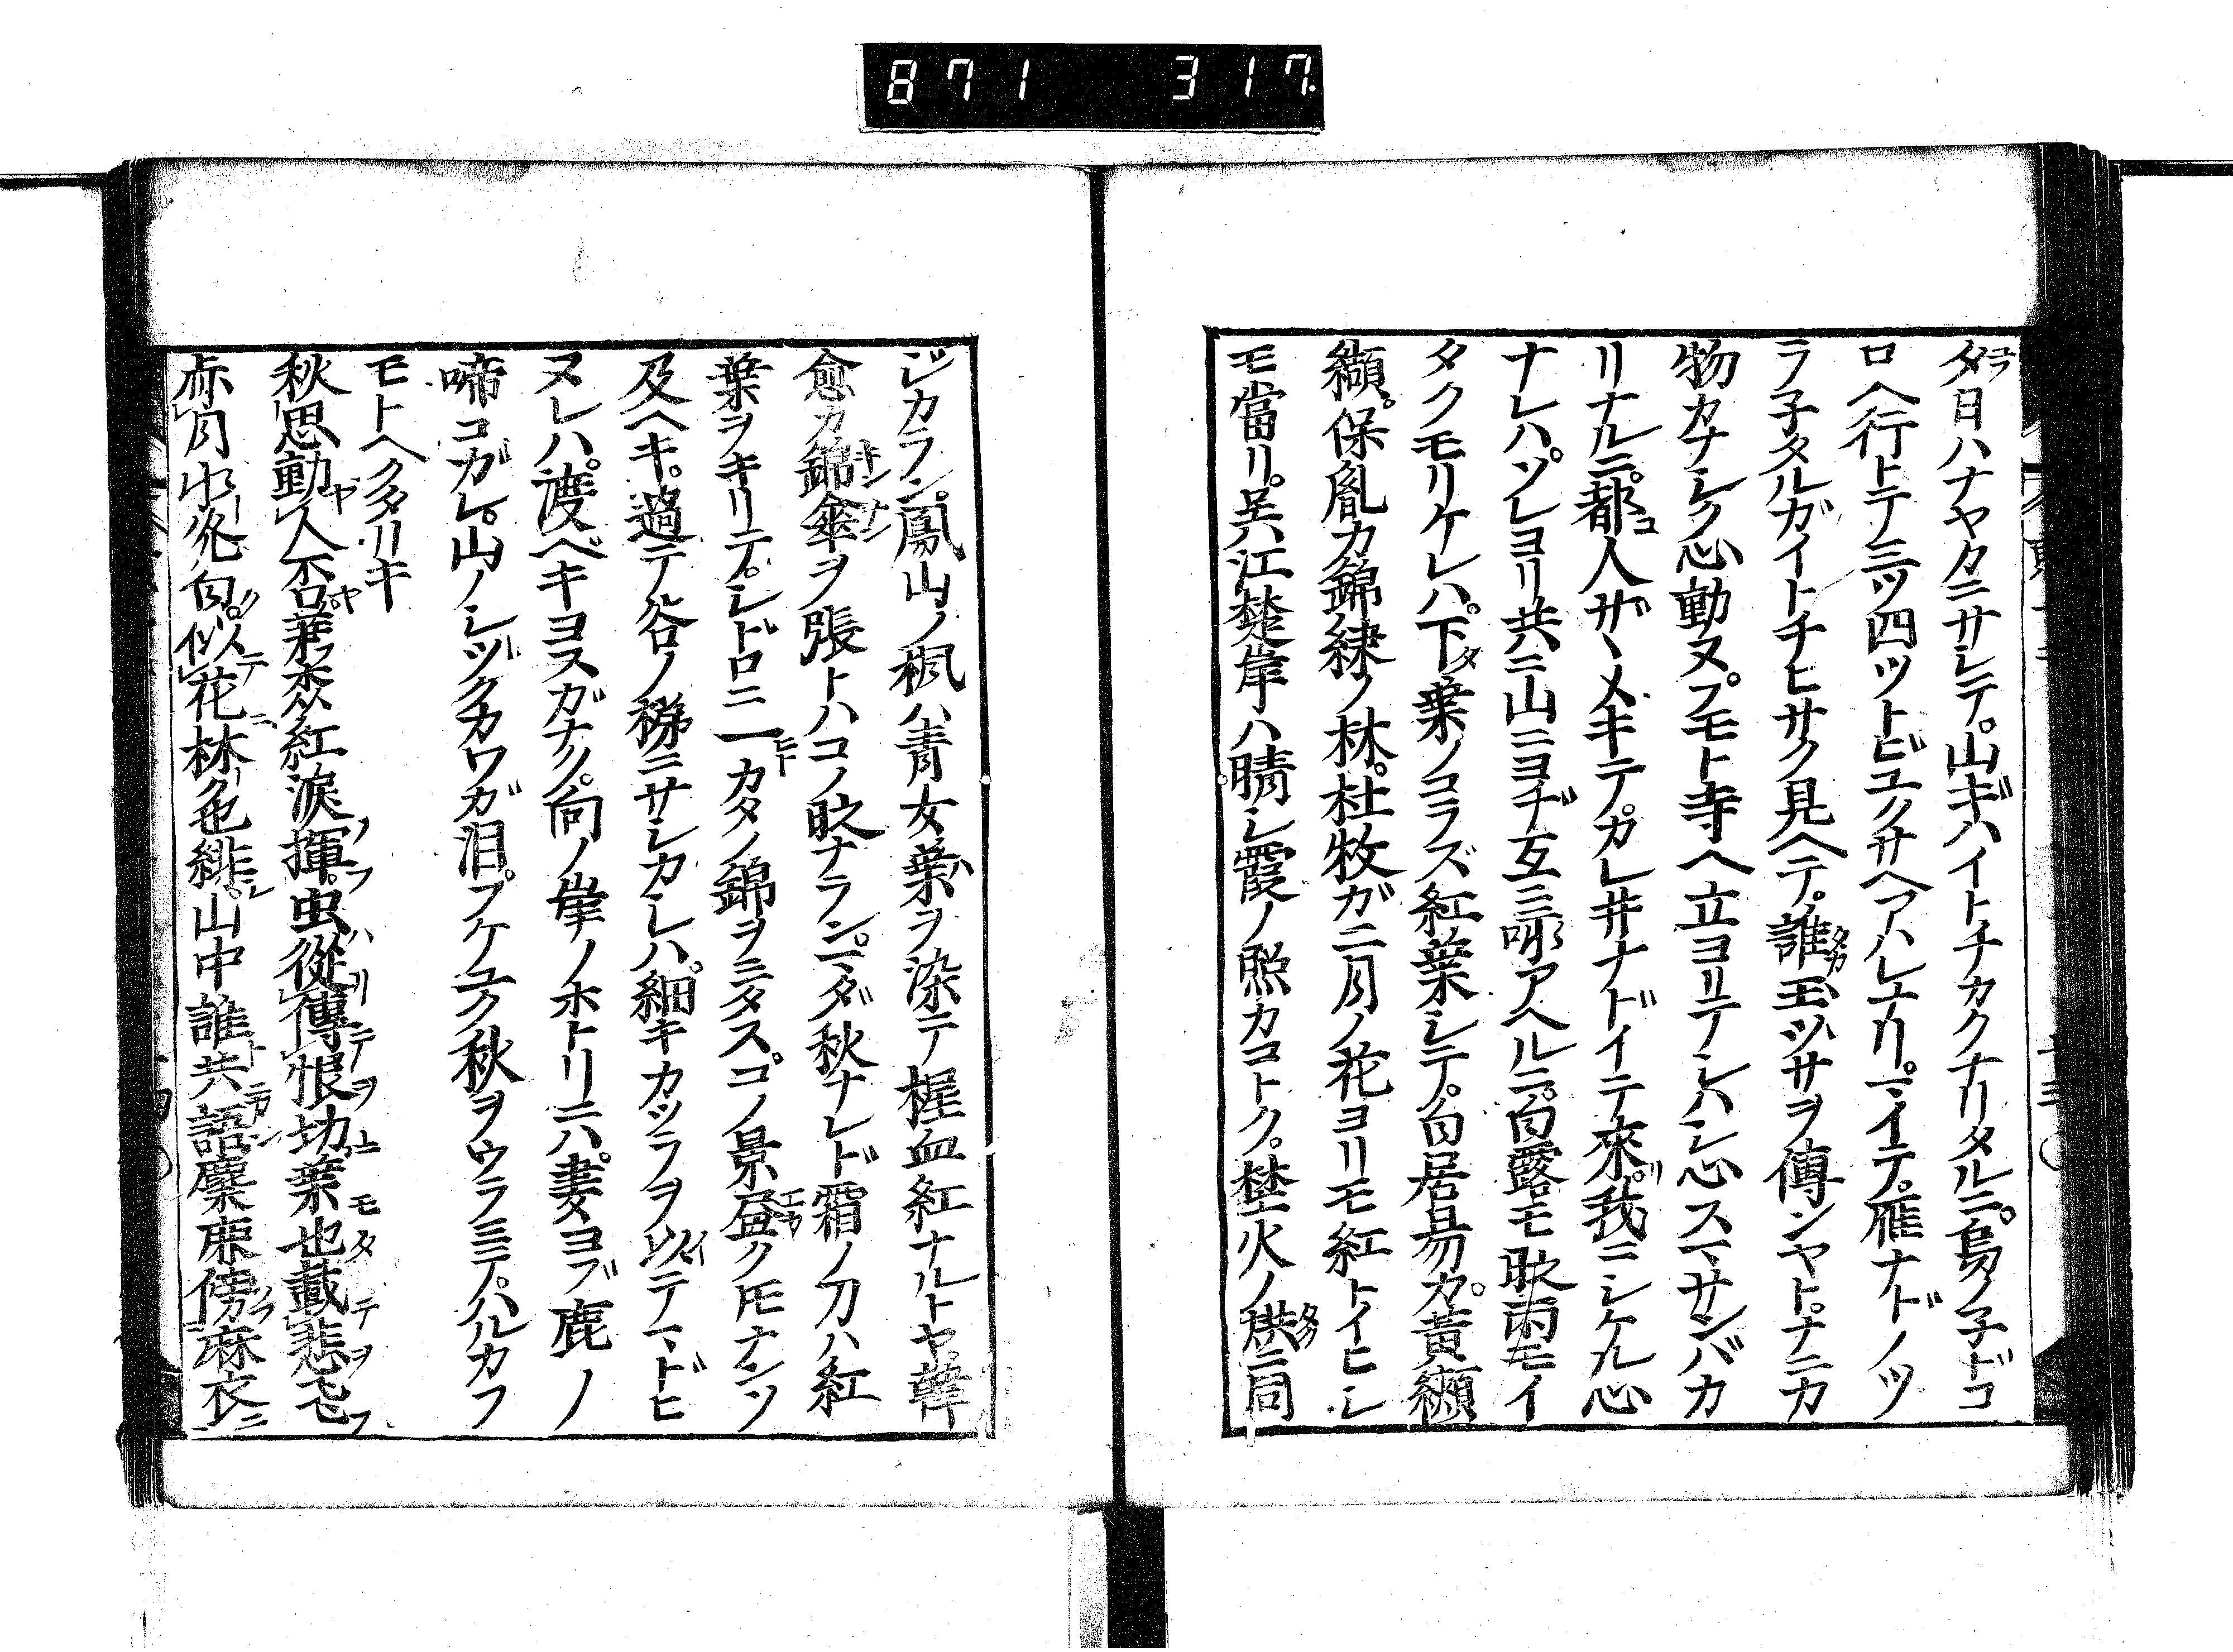 871 317
夕日ハナヤカニサシテ。山ギハイトチカクナリタルニ。烏ノ子ドコ
ロヘ行トテ三ツ四ツトビユクサヘアハレナリ。マイテ。雁ナドノツ
ラ子タルガイトチヒサク見ヘテ。誰玉ヅサヲ傳ンヤト。ナニカ
物カナシク心動ヌ。フモト寺ヘ立ヨリテシハシ心スマサンバカ
リナルニ。都人ザヽメキテ。カレ井ナドイテ來。我ニシケル心
ナレハ。ソレヨリ共ニ山ニヨヂ互ニ詠アヘルニ。白露モ時雨モイ
タクモリケレハ。下葉ノコラズ紅葉シテ。白居易カ。黃纐
纈。保胤カ錦繍ノ林。杜牧ガ二月ノ花ヨリモ紅トイヒシ
モ當リ。呉江楚岸ハ晴シ霞ノ照カコトク。埜火ノ燒ニ同
ジカラン。鳳山ノ楓ハ青女葉ヲ染テ猩血紅ナルトヤ。韓
愈カ錦傘ヲ張トハコノ時ナラン。ニダ秋ナレド霜ノ刀ハ紅
葉ヲキリテ。シドロニ一カタノ錦ヲミタス。コノ景畫クモナンソ
及ヘキ。過テ谷ノ梯ニサシカレハ。細キカツラヲ以テマドヒ
ヌレハ。渡ベキヨスガナク。向ノ岸ノホトリニハ。妻ヨブ鹿ノ
啼コガレ。山ノシヅクカワガ泪。フケユク秋ヲウラミテ。ハルカフ
モトヘクタリキ
秋思動人否葉忝紅淚揮。虫從傳恨切葉也載悲飛
赤月山光白。似花林色緋。山中誰共語麋鹿傍麻衣